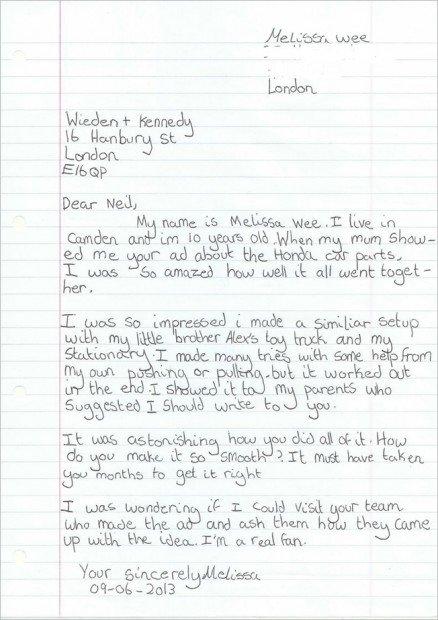 Melissa Wee
London
Wieden + Kennedy
16 Hanbury St
London
E16QP
Dear Neil,
My name is Melissa Wee. I live in
Camden and im 10 years old. When my mum show-
ed me your ad about the Honda car parts,
I was so amazed how well it all went toget-
her.
I was so impressed i made a similiar setup
with my little brother Alex's toy truck and my
Stationary. I made many tries with some help from
my own pushing or pulling. but it worked out
in the end. I showed it to my parents who
Suggested I Should write to you.
It was astonishing how you did all of it. How
do you make it so smooth? It must have taken
you months to get it right
I was wondering if I could visit your team
who made the ad and ask them how they came
up with the idea. I'm a real fan.
Your sincerely Melissa
09-06-2013